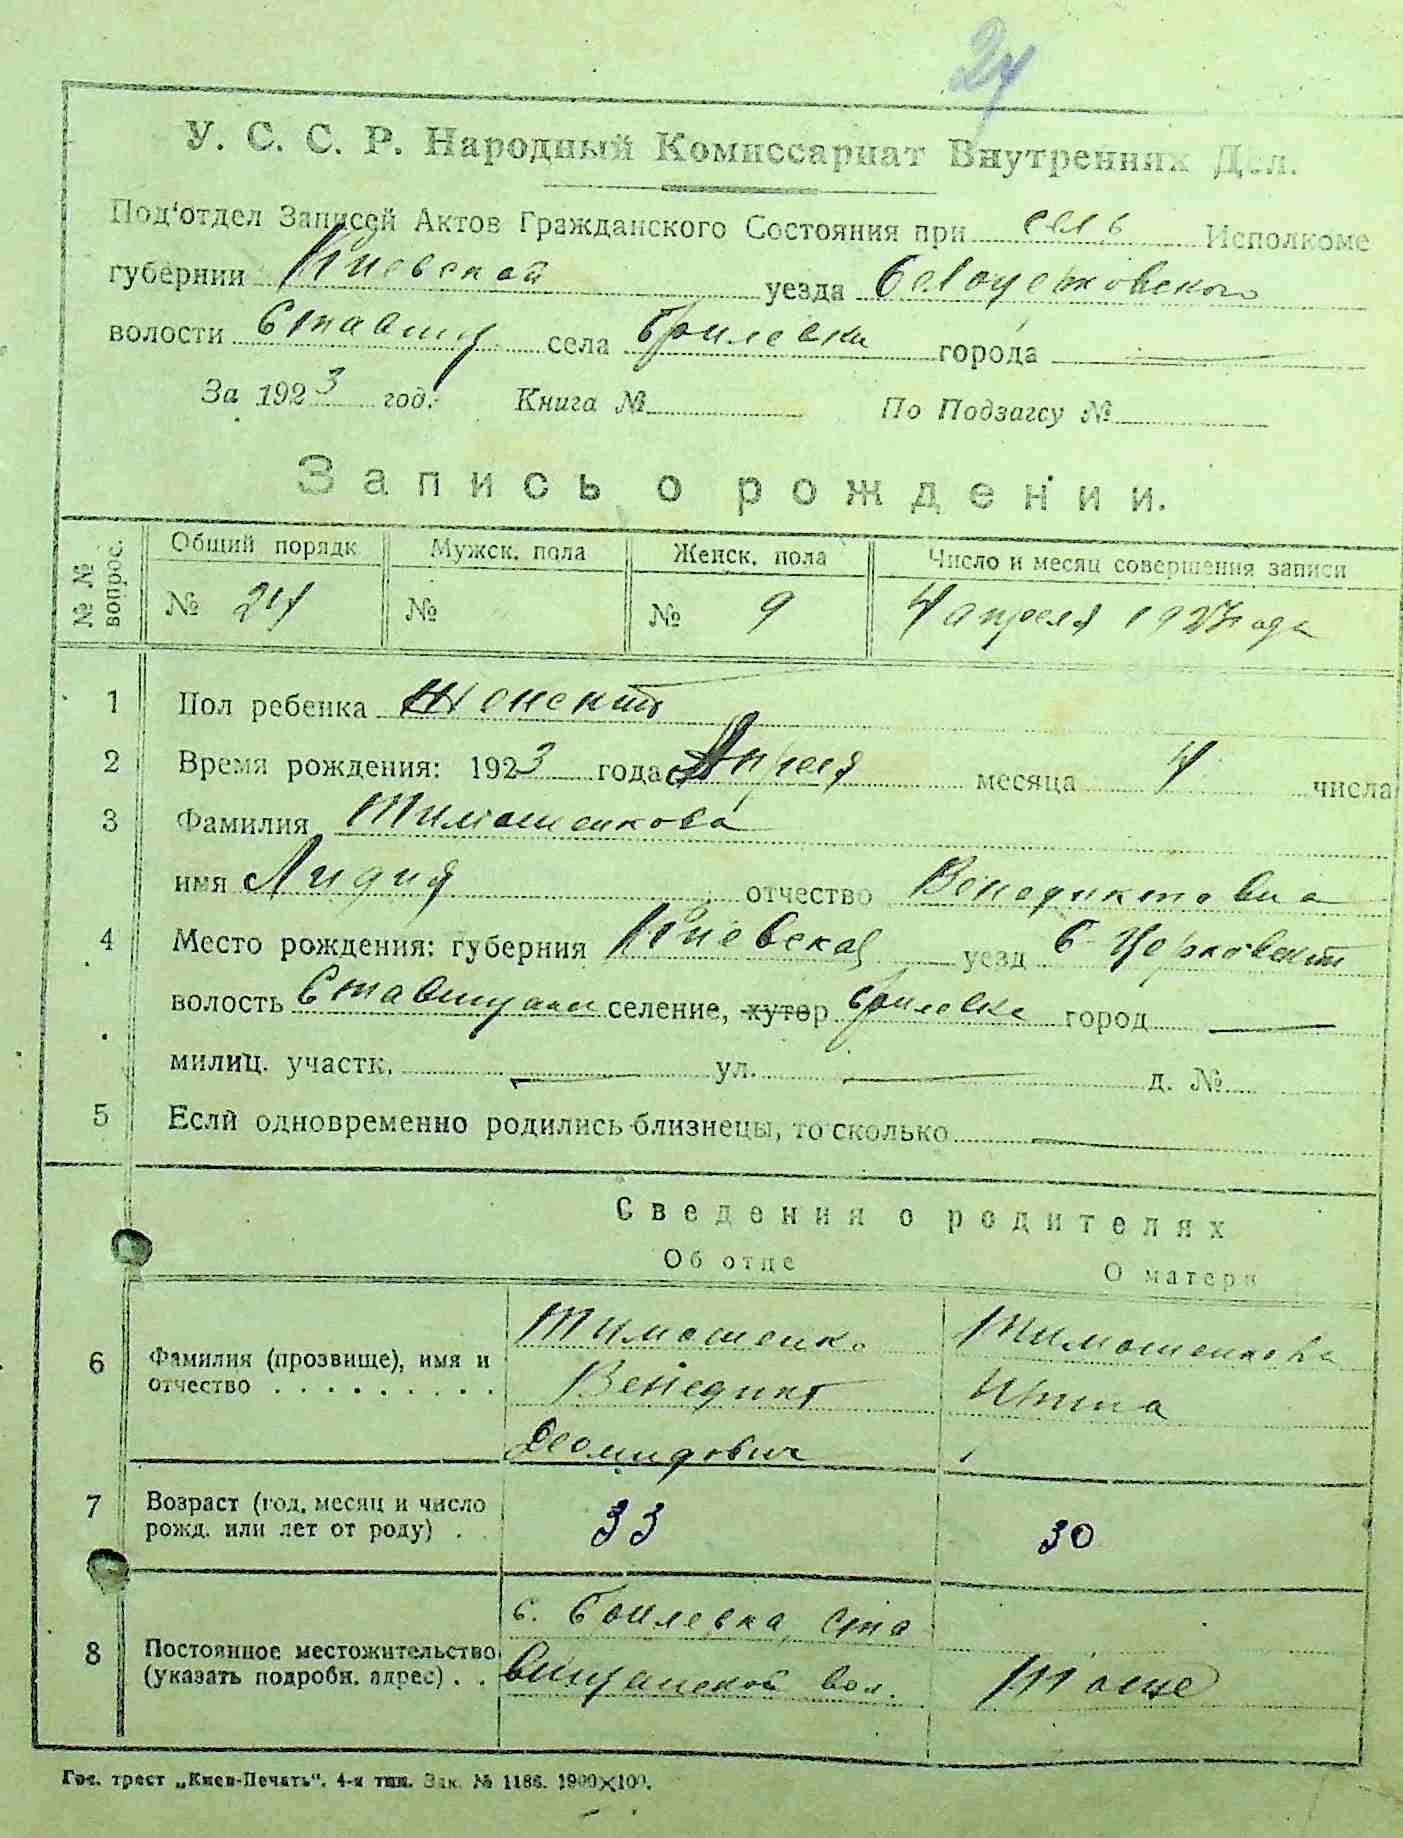 24
У. С. С. Р. Народный Комиссариат Внутренних Дел.
Под'отдел Записей Актов Гражданского Состояния при сель Исполкоме
губернии Киевской уезда Белоцерковского
волости Ставищ села Брилевки города
За 1923 год. Книга № По Подзагсу №
Запись о рождении.
№ № вопрос. Общий порядк Мужск. пола Женск. пола Число и месяц совершения записи
№ 24 № № 9 4 апреля 1923 года
1 Пол ребенка Женский
2 Время рождения: 1923 года Апреля месяца 4 числа
3 Фамилия Тимошенкова
имя Лидия отчество Венедиктовна
4 Место рождения: губерния Киевская уезд Б-Церковский
волость Ставищан селение, хутор Брилевка город
милиц. участк. ул. д. №
5 Если одновременно родились близнецы, то сколько
Сведения о родителях
Об отце О матери
6 Фамилия (прозвище), имя и отчество Тимошенко Венедикт Деомидович Тимошенкова
7 Возраст (год, месяц и число рожд. или лет от роду) 33 30
8 Постоянное местожительство (указать подробн. адрес) с. Брилевка, Ставищанской вол. Тоже
Гос. трест „Киев-Печать". 4-я тип. Зак. № 1186. 1900×100.